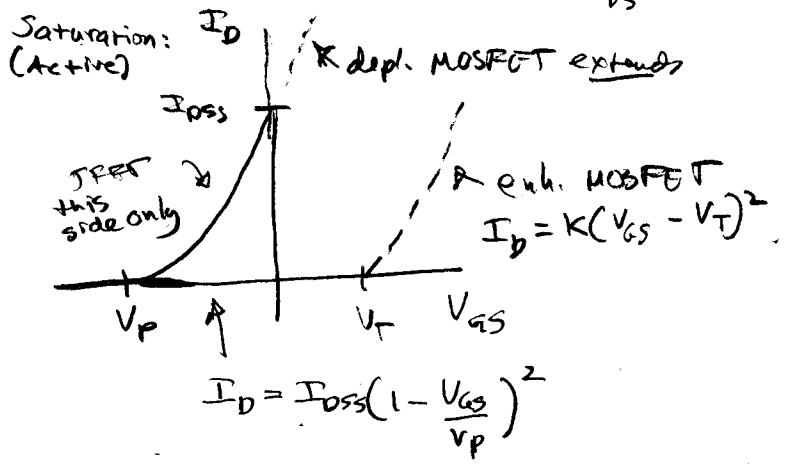 Saturation:
(Active)
I_D
depl. MOSFET extends
I_DSS
JFET
this
side only
enh. MOSFET
I_D = K(V_GS - V_T)^2
V_P
V_T
V_GS
I_D = I_DSS(1 - V_GS/V_P)^2